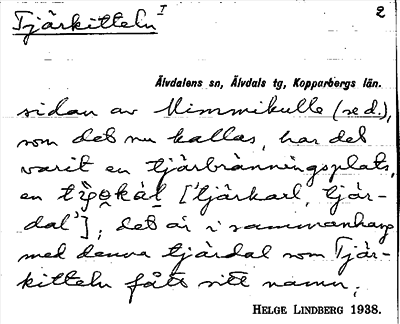 Tjärkitteln I 2
Älvdalens sn, Älvdals tg, Kopparbergs län.
sidan av Mimmikulle (se d.),
som det nu kallas, har det
varit en tjärbränningsplats,
en [tjärkarl, tjär-
dal']; det är i sammanhang
med denna tjärdal som Tjär-
kitteln fått sitt namn.
HELGE LINDBERG 1938.